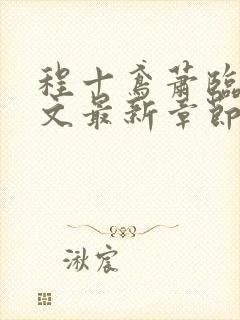 程十鸢萧临
文最新章節
湫宸